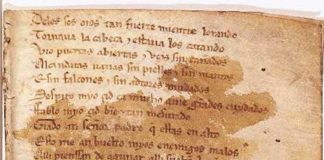 Delos sos oios tan fuerte mientre lorando
Tornaua la cabeça & estaua los catando
Vio puertas abiertas & vços sin cañados
Alcandaras uazias sin pielles & sin mantos
E sin falcones & sin adtores mudados
Sospiro myo çid ca mucho auie grandes cuydados
Fablo myo çid bien & tan mesurado
Grado a ti señor padre que estas en alto
Esto me an buelto myos enemigos malos
Alli pienssan de aguiiar alli sueltan